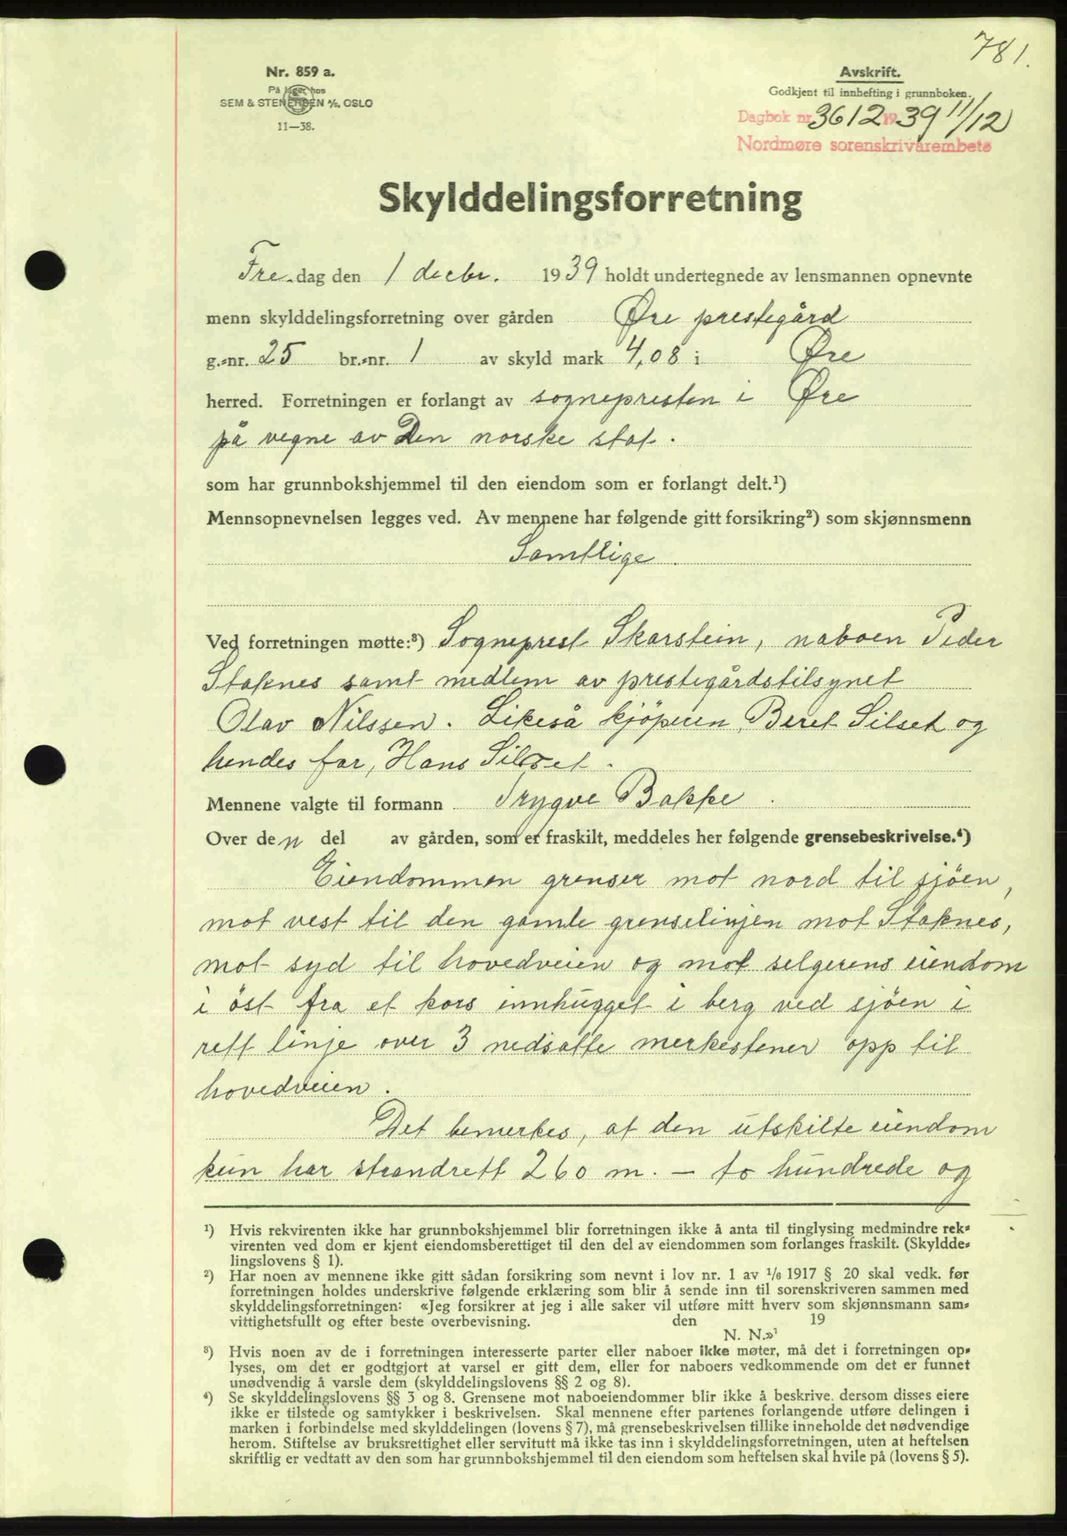 781.
Nr. 859 a.
På lager hos
SEM & STENERSEN A/S, OSLO
11—38.
Avskrift.
Godkjent til innhefting i grunnboken.
Dagbok nr. 3612 1939 11/12
Nordmøre sorenskriverembete
Skylddelingsforretning
Fre.dag den 1 decbr. 1939 holdt undertegnede av lensmannen opnevnte
menn skylddelingsforretning over gården Øre prestegård
g.-nr. 25 br.-nr. 1 av skyld mark 4,08 i Øre
herred. Forretningen er forlangt av sognepresten i Øre
på vegne av Den norske stat.
som har grunnbokshjemmel til den eiendom som er forlangt delt.¹)
Mennsopnevnelsen legges ved. Av mennene har følgende gitt forsikring²) som skjønnsmenn
Samtlige.
Ved forretningen møtte:³) Sogneprest Skarstein, naboen Peder
Staknes samt medlem av prestegårdstilsynet
Olav Nilssen. Likeså kjöperen, Beret Silset og
hendes far, Hans Silset.
Mennene valgte til formann Trygve Bakke.
Over den del av gården, som er fraskilt, meddeles her følgende grensebeskrivelse.⁴)
Eiendommen grenser mot nord til sjöen,
mot vest til den gamle grenselinjen mot Staknes,
mot syd til hovedveien og mot selgerens eiendom
i öst fra et kors innhugget i berg ved sjöen i
rett linje over 3 nedsatte merkestener opp til
hovedveien.
Det bemerkes, at den utskilte eiendom
kun har strandrett 260 m. — to hundrede og
¹) Hvis rekvirenten ikke har grunnbokshjemmel blir forretningen ikke å anta til tinglysing medmindre rek-
virenten ved dom er kjent eiendomsberettiget til den del av eiendommen som forlanges fraskilt. (Skyldde-
lingslovens § 1).
²) Har noen av mennene ikke gitt sådan forsikring som nevnt i lov nr. 1 av 1/6 1917 § 20 skal vedk. før
forretningen holdes underskrive følgende erklæring som blir å sende inn til sorenskriveren sammen med
skylddelingsforretningen: «Jeg forsikrer at jeg i alle saker vil utføre mitt hverv som skjønnsmann sam-
vittighetsfullt og efter beste overbevisning. den 19
N. N.»
³) Hvis noen av de i forretningen interesserte parter eller naboer ikke møter, må det i forretningen op-
lyses, om det er godtgjort at varsel er gitt dem, eller for naboers vedkommende om det er funnet
unødvendig å varsle dem (skylddelingslovens §§ 2 og 8).
⁴) Se skylddelingslovens §§ 3 og 8. Grensene mot naboeiendommer blir ikke å beskrive. dersom disses eiere
ikke er tilstede og samtykker i beskrivelsen. Skal mennene efter partenes forlangende utføre delingen i
marken i forbindelse med skylddelingen (lovens § 7), må grensebeskrivelsen tillike inneholde det nødvendige
herom. Stiftelse av bruksrettighet eller servitutt må ikke tas inn i skylddelingsforretningen, uten at heftelsen
skriftlig er vedtatt av den som har grunnbokshjemmel til den eiendom som heftelsen skal hvile på (lovens § 5).